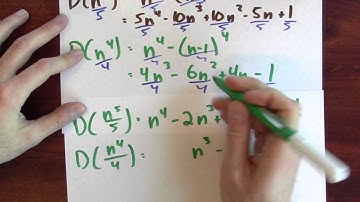 D(n⁵/5)
= 5n⁴/5 - 10n³/5 + 10n²/5 - 5n/5 + 1/5
D(n⁴/4) = n⁴/4 - (n-1)⁴/4
= 4n³/4 - 6n²/4 + 4n - 1
D(n⁵/5) = n⁴ - 2n³ +
D(n⁴/4) = n³ -